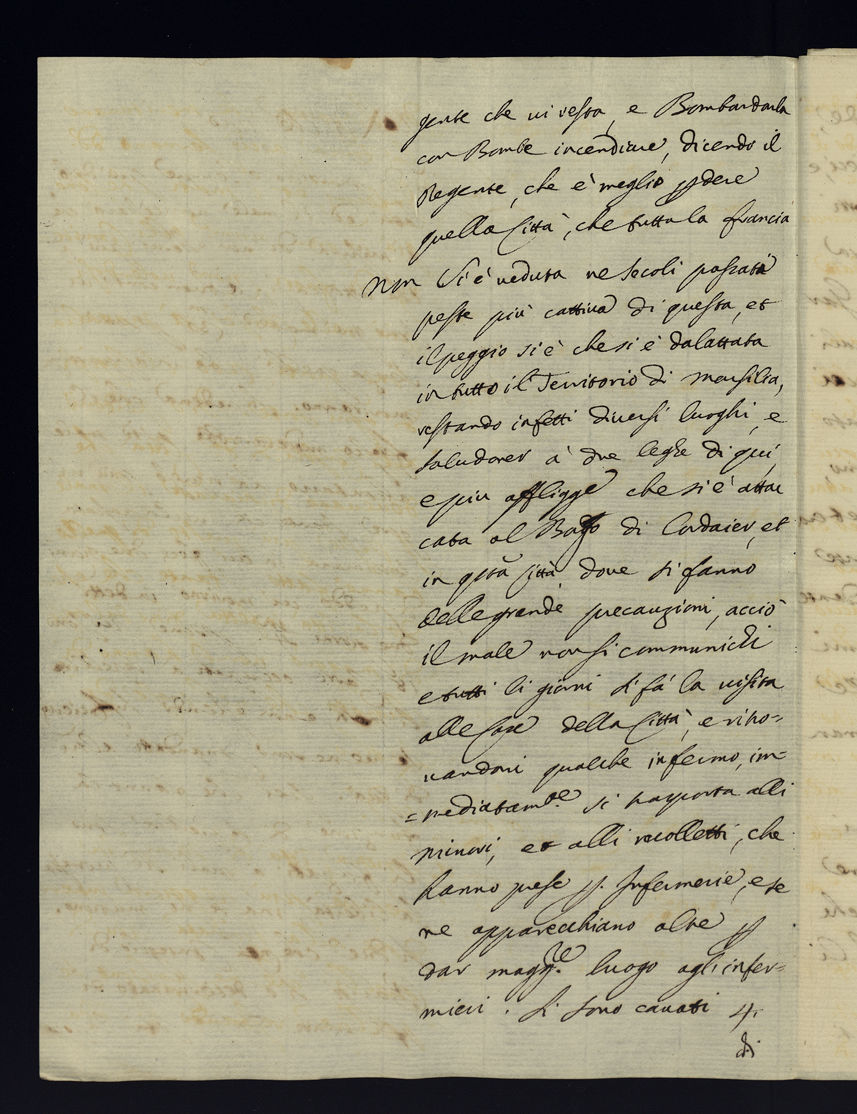 gente che vi resta, e Bombardarla
con Bombe incendiarie, dicendo il
Regente, che è meglio pdere
quella Città, che tutta la francia
non Si è veduta ne secoli passati
peste più cattiva di questa, et
il peggio si è che si è dalattata
in tutto il Territorio di Marsilia,
restando infetti diversi luoghi, e
à due leghe di qui,
e piu affligge che si è attac
cata al di et
in qsta Città, dove si fanno
delle grande precauzioni, acciò
il male non si communichi
e tutti li giorni si fà la visita
alle Case della Città, e ritro=
vandovi qualche infermo, im=
=mediatamte si trasporta alli
minori, et alli recolletti, che
hanno prese p Infermerie, e se
ne apparecchiano altre p
dar maggre luogo agli infer=
mieri. Si sono cavati 4.
di